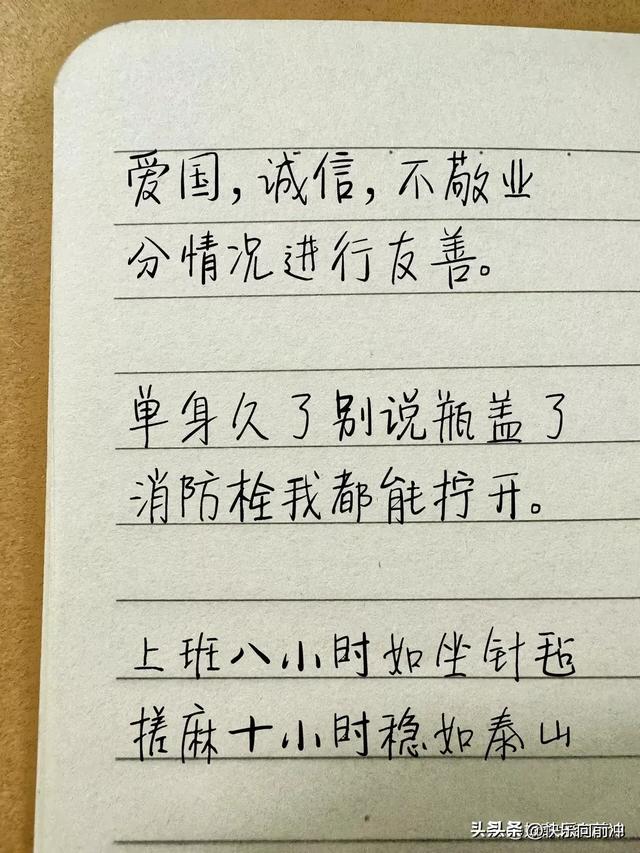 爱国，诚信，不敬业
分情况进行友善。
单身久了别说瓶盖了
消防栓我都能拧开。
上班八小时如坐针毡
搓麻十小时稳如泰山
头条@快乐向前冲